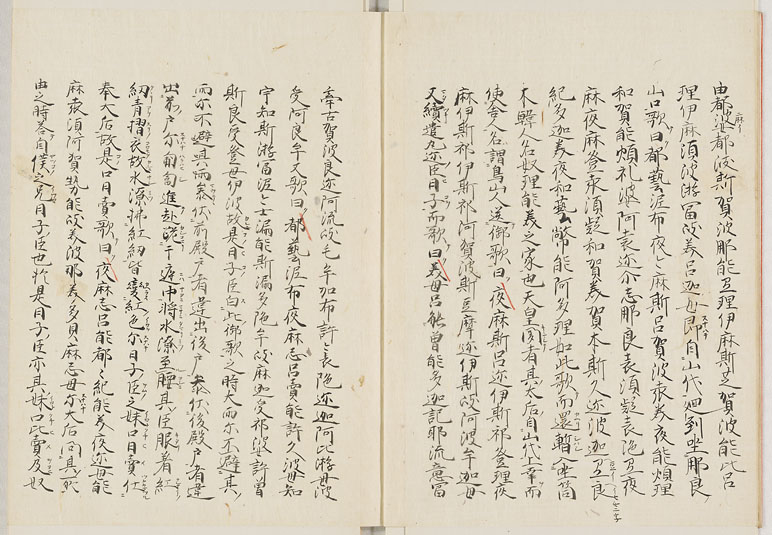 由都婆都波斯賀波那能弖理伊麻斯芝賀波能比呂
理伊麻須波游冨岐美呂迦母即自山代廻到坐那良
山口歌曰都藝泥布夜〻麻斯呂賀波袁美夜能煩理
和賀能煩礼波阿袁迩余志那良袁須疑袁陁弖夜
麻夜麻登袁須疑和賀美賀本斯久迩波迦豆良
紀多迦美夜和藝幣能阿多理如此歌而還暫入坐筒
木韓人名奴理能美之家也天皇聞看其太后自山代上幸而
使舎人名謂鳥山人送御歌曰夜麻斯呂迩伊斯祁登理夜
麻伊斯祁伊斯祁阿賀波斯豆摩迩伊斯岐阿波牟迦母
又續遣丸迩臣口子而歌曰美母呂能曽能多迦紀那流意冨
韋古賀波良迩阿流岐毛牟加布許〻袁陁迩迦阿比游母波
受阿良牟又歌曰都藝泥布夜麻志呂賣能許久波母知
宇知斯游冨泥〻士漏能斯漏多陁牟岐麻迦受祁婆許曽
斯良受登母伊波故是口子臣白此御歌之時大雨尓不避其
雨尓不避其雨参伏前殿戸者違出後戸参伏後殿戸者違
出前戸尓匍匐進赴跪于庭中時水潦至腰其臣服着紅
紐青摺衣故水潦拂紅紐皆變紅色尓口子臣之妹口日賣仕
奉大后故是口日賣歌曰夜麻志呂能都〻紀能美夜迩母能
麻袁須阿賀勢能岐美波那美多具麻志母尓大后問其所
由之時答白僕之兄口子臣也於是口子臣亦其妹口比賣及奴